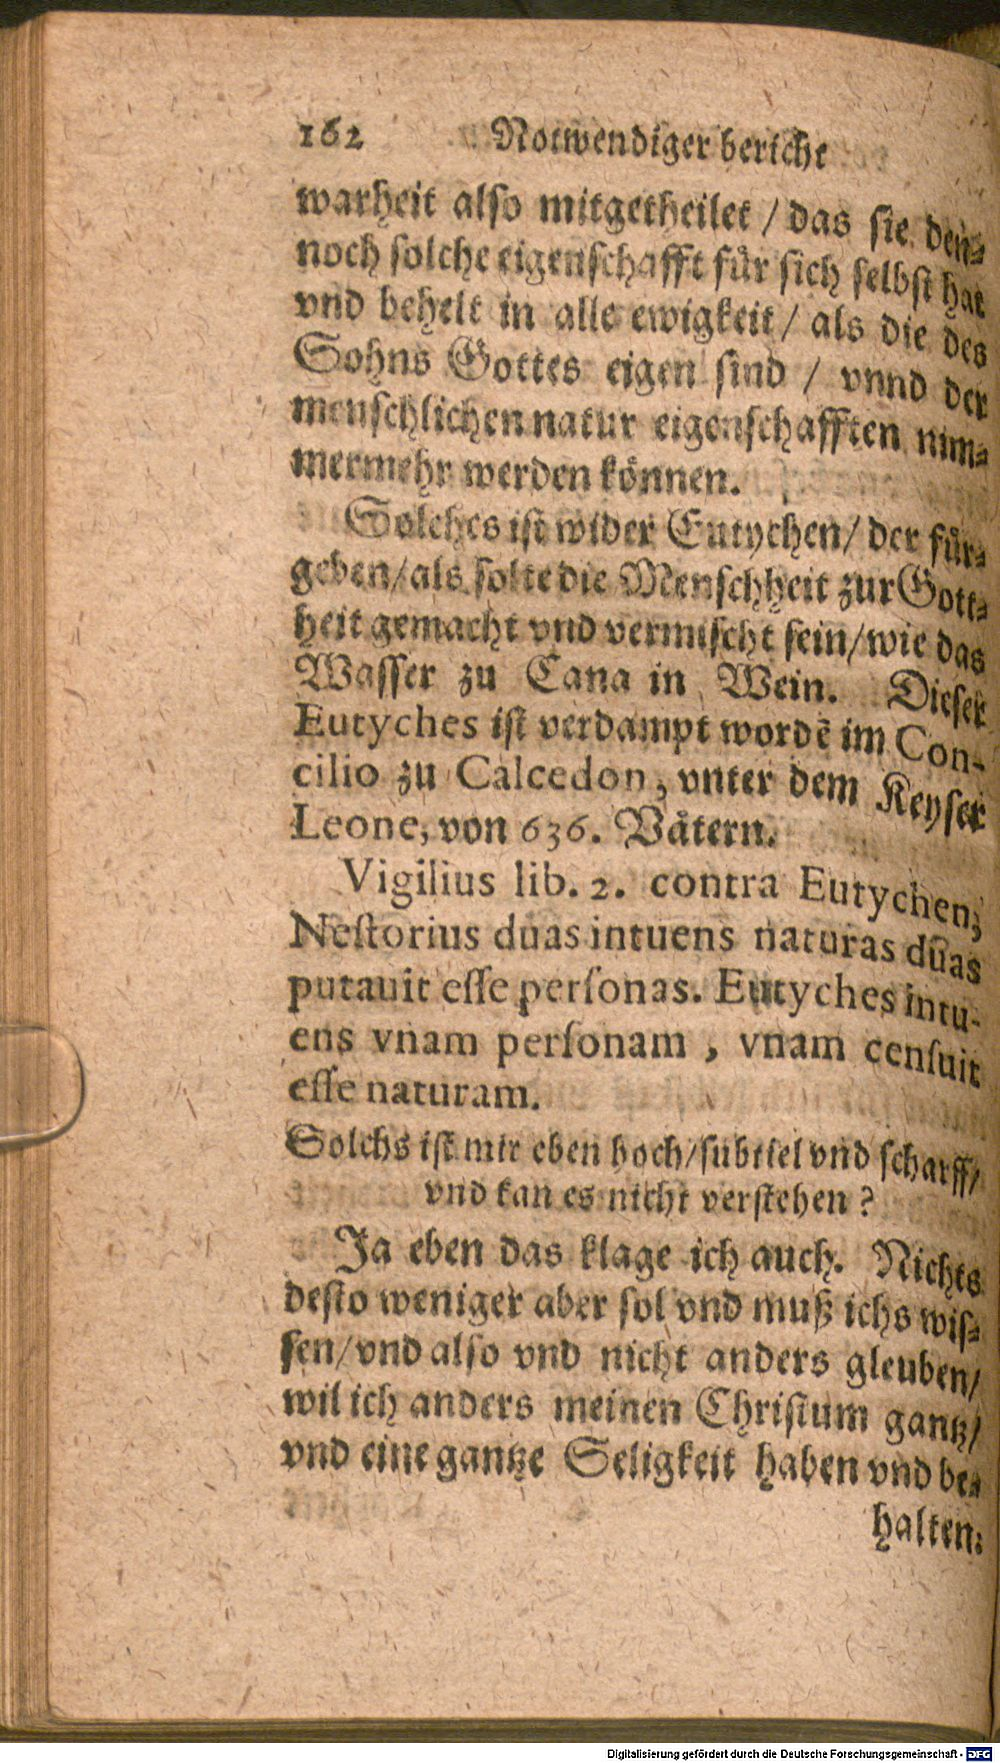 162 Notwendiger bericht
warheit also mitgetheilet / das sie den⸗
noch solche eigenschafft fuͤr sich selbst hat
vnd behelt in alle ewigkeit / als die des
Sohns Gottes eigen sind / vnnd der
menschlichen natur eigenschafften nim⸗
mermehr werden koͤnnen.
Solches ist wider Eutychen / der fuͤr⸗
geben / als solte die Menschheit zur Gott⸗
heit gemacht vnd vermischt sein / wie das
Wasser zu Cana in Wein. Dieser
Eutyches ist verdampt wordē im Con-
cilio zu Calcedon, vnter dem Keyser
Leone, von 636. Vaͤtern.
Vigilius lib. 2. contra Eutychen;
Nestorius duas intuens naturas duas
putauit esse personas. Eutyches intu-
ens vnam personam , vnam censuit
esse naturam.
Solchs ist mir eben hoch / subtiel vnd scharff /
vnd kan es nicht verstehen ?
Ja eben das klage ich auch. Nichts
desto weniger aber sol vnd muß ichs wis⸗
sen / vnd also vnd nicht anders gleuben /
wil ich anders meinen Christum gantz /
vnd eine gantze Seligkeit haben vnd be⸗
halten:
Digitalisierung gefördert durch die Deutsche Forschungsgemeinschaft - DFG